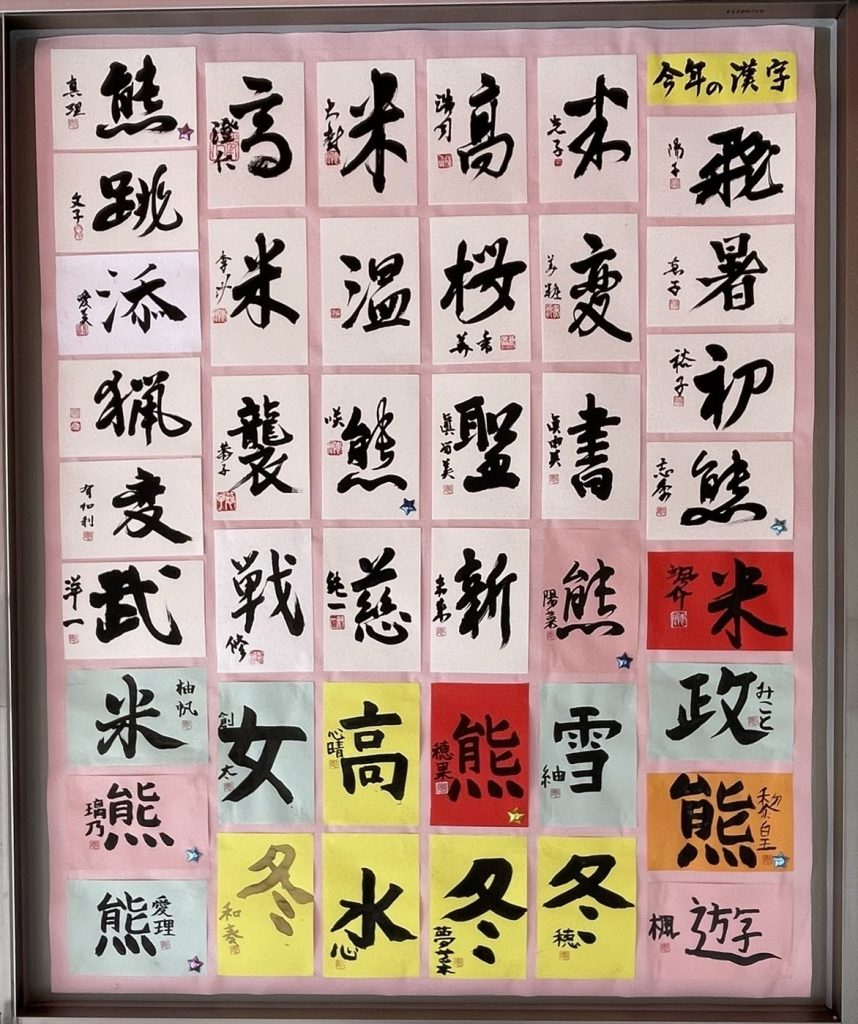 今年の漢字
飛
陽子
暑
初
裕子
熊
米
颯介
政
みこと
熊
黎皇
遊
楓
米
光子
変
書
眞由美
熊
陽菜
雪
紬
冬
穂
高
桜
美香
聖
新
未来
熊
穂果
冬
夢菜
米
大樹
温
熊
咲
慈
純一
高
心晴
水
心
高
澄仁
米
襲
恭子
戦
修
女
創太
冬
和奏
熊
真理
跳
文子
添
愛美
猟
変
有加利
武
洋一
米
柚帆
熊
璃乃
熊
愛理